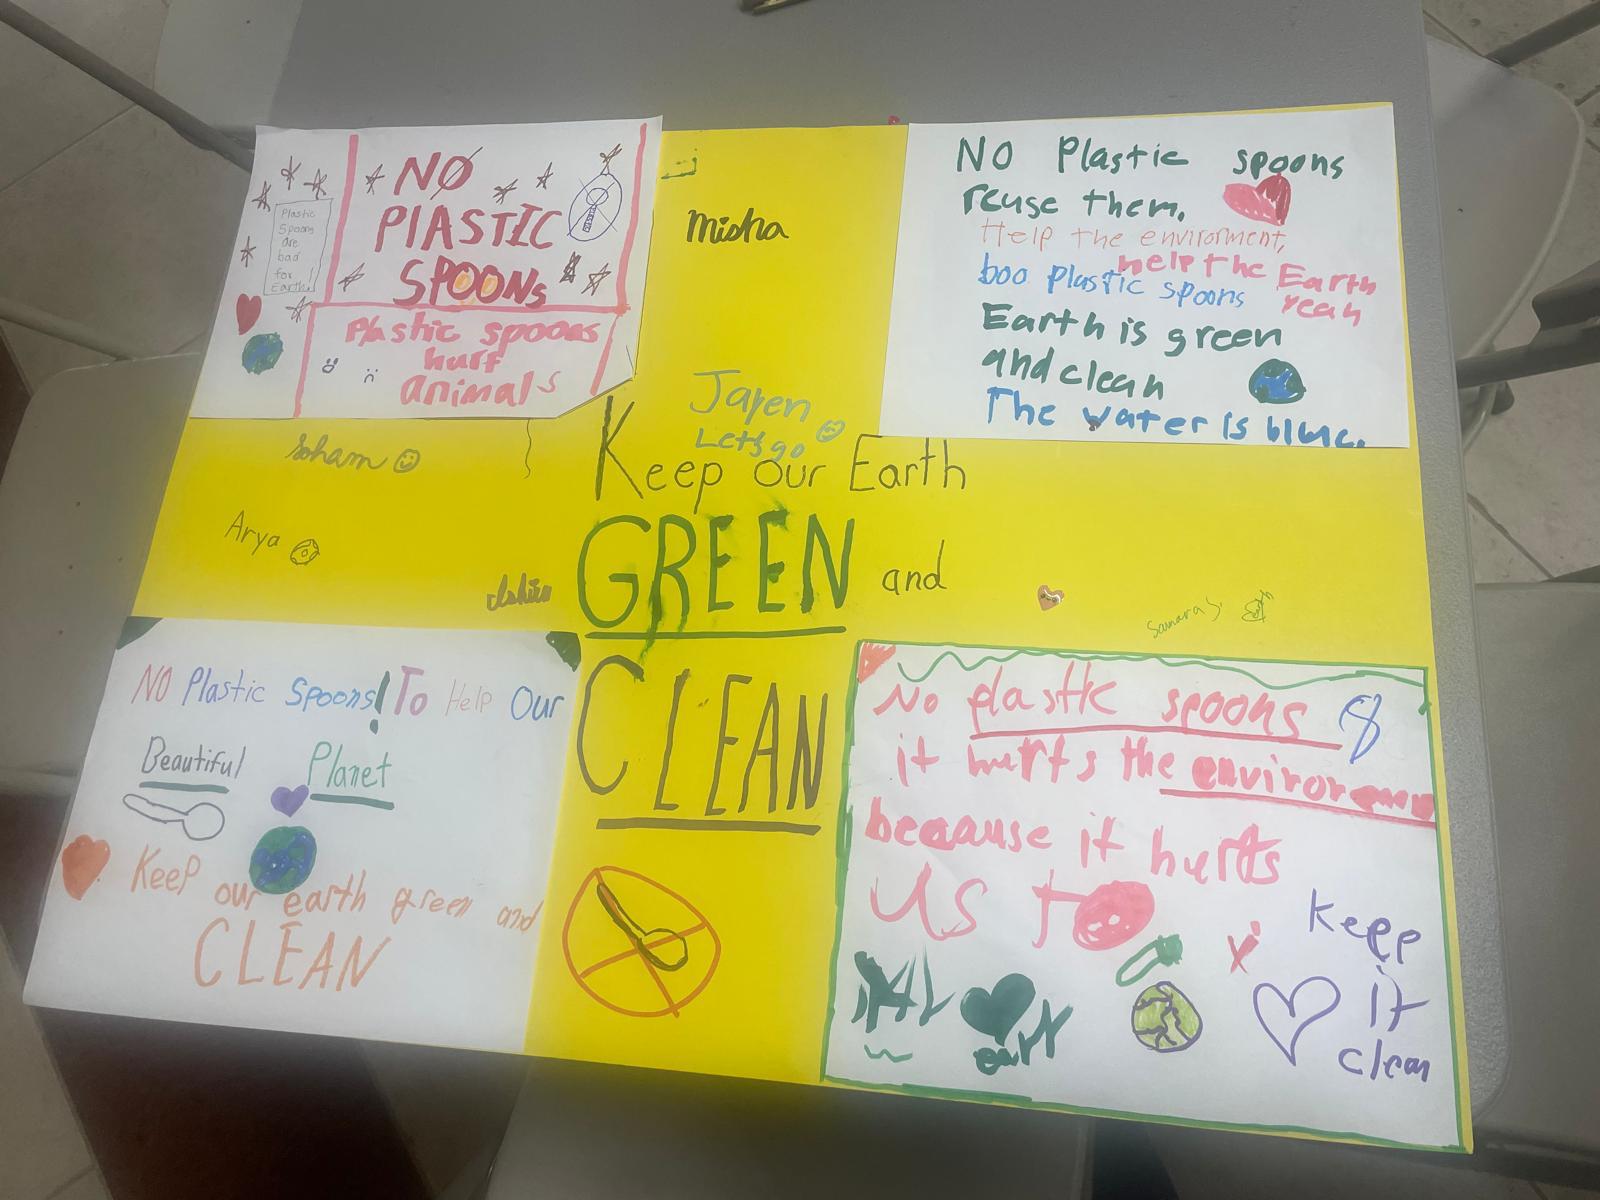 NO
PlASTIC
SPOONs
Plastic
Spoons
are
bad
for
Earth!
Plastic spoons
hurt
animals
Misha
NO Plastic spoons
reuse them.
Help the enviroment,
help the Earth
yeah
boo plastic spoons
Earth is green
and clean
The water is blue.
Jayen
Let's go
Soham
Arya
Keep our Earth
GREEN and
CLEAN
Samara S.
NO Plastic Spoons! To Help Our
Beautiful Planet
Keep our earth green and
CLEAN
No plastic spoons
it hurts the
because it hurts
US
Keep
it
clean